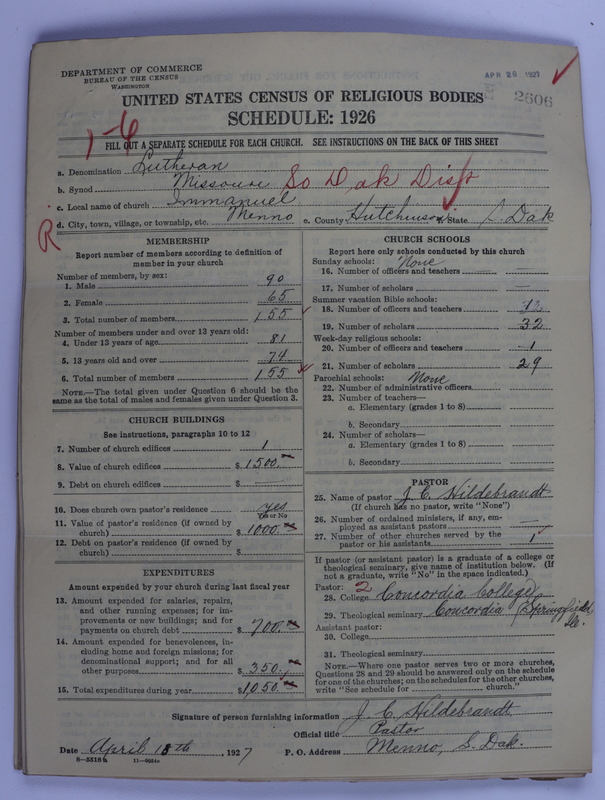 DEPARTMENT OF COMMERCE
BUREAU OF THE CENSUS
WASHINGTON
APR 29 1927
2606
UNITED STATES CENSUS OF RELIGIOUS BODIES
SCHEDULE: 1926
1-6
FILL OUT A SEPARATE SCHEDULE FOR EACH CHURCH. SEE INSTRUCTIONS ON THE BACK OF THIS SHEET
a. Denomination Lutheran
b. Synod Missouri So Dak Distr
c. Local name of church Immanuel
d. City, town, village, or township, etc. Menno e. County Hutchinson f. State S. Dak
R
MEMBERSHIP
Report number of members according to definition of
member in your church
Number of members, by sex:
1. Male 90
2. Female 65
3. Total number of members 155
Number of members under and over 13 years old:
4. Under 13 years of age 81
5. 13 years old and over 74
6. Total number of members 155
NOTE.—The total given under Question 6 should be the
same as the total of males and females given under Question 3.
CHURCH BUILDINGS
See instructions, paragraphs 10 to 12
7. Number of church edifices 1
8. Value of church edifices $ 1500.
9. Debt on church edifices $
10. Does church own pastor's residence yes
Yes or No
11. Value of pastor's residence (if owned by
church) $ 1000
12. Debt on pastor's residence (if owned by
church) $
EXPENDITURES
Amount expended by your church during last fiscal year
13. Amount expended for salaries, repairs,
and other running expenses; for im-
provements or new buildings; and for
payments on church debt $ 700
14. Amount expended for benevolences, in-
cluding home and foreign missions; for
denominational support; and for all
other purposes $ 350.
15. Total expenditures during year $ 1050
CHURCH SCHOOLS
Report here only schools conducted by this church
Sunday schools: None
16. Number of officers and teachers
17. Number of scholars
Summer vacation Bible schools:
18. Number of officers and teachers
19. Number of scholars 32
Week-day religious schools:
20. Number of officers and teachers 1
21. Number of scholars 29
Parochial schools: None
22. Number of administrative officers
23. Number of teachers—
a. Elementary (grades 1 to 8)
b. Secondary
24. Number of scholars—
a. Elementary (grades 1 to 8)
b. Secondary
PASTOR
25. Name of pastor J. C. Hildebrandt
(If church has no pastor, write "None")
26. Number of ordained ministers, if any, em-
ployed as assistant pastors
27. Number of other churches served by the
pastor or his assistants 1
If pastor (or assistant pastor) is a graduate of a college or
theological seminary, give name of institution below. (If
not a graduate, write "No" in the space indicated.)
Pastor: 2
28. College Concordia College
29. Theological seminary Concordia (Springfield
Ill.
Assistant pastor:
30. College
31. Theological seminary
NOTE.—Where one pastor serves two or more churches,
Questions 28 and 29 should be answered only on the schedule
for one of the churches; on the schedules for the other churches,
write "See schedule for church."
Signature of person furnishing information J. C. Hildebrandt
Official title Pastor
Date April 18th, 1927 P. O. Address Menno, S. Dak.